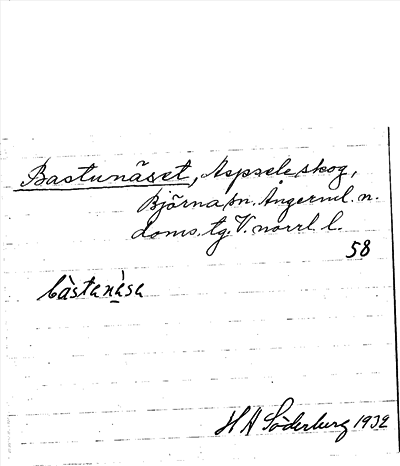 Bastunäset, Aspsele skog,
Björna sn. Ångerml. n.
doms. tg. V. norrl. l.
58
bàstanàsa
H A Söderberg 1932